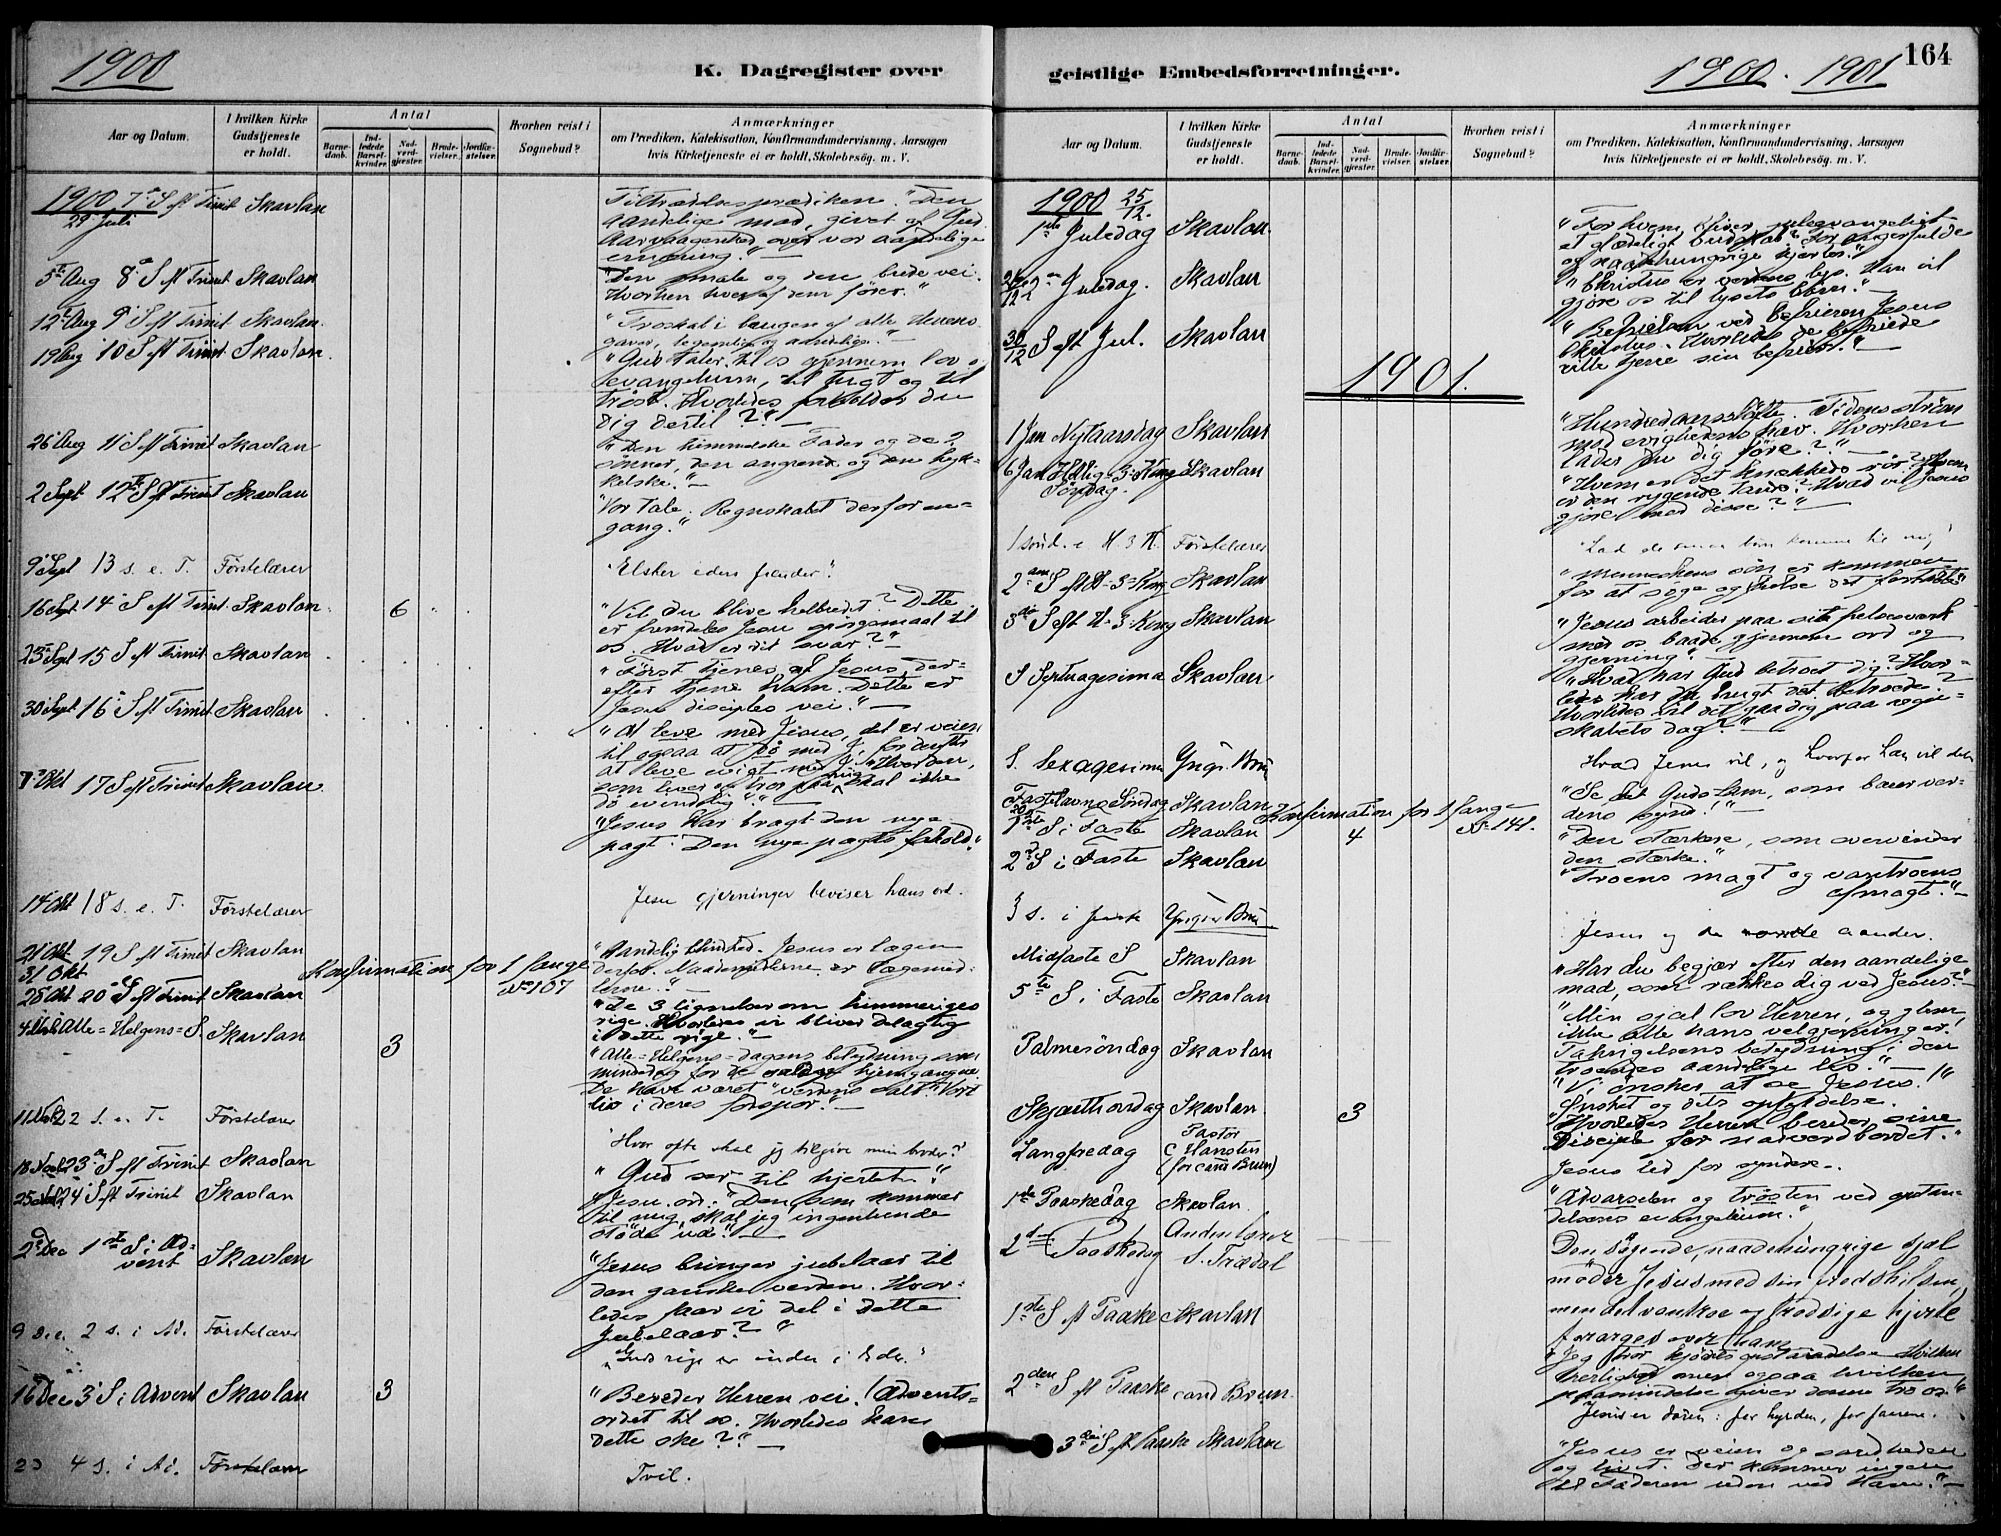 1900
K. Dagregister over
Aar og Datum.
I hvilken Kirke Gudstjeneste er holdt.
Antal
Barnedaab.
Indledede Barselkvinder.
Nadverdgjæster.
Brudevielser.
Jordfæstelser.
Hvorhen reist i Sognebud?
Anmærkninger
om Prædiken, Katekisation, Konfirmandundervisning, Aarsagen
hvis Kirketjeneste ei er holdt, Skolebesøg. m. V.
1900 7de S eft Trinit Skavlan
29 Juli
Tiltrædelsesprædiken. "Den
aandelige mad, givet af Gud.
Aarvaagenhed over vor aandelige
ernæring."
5te Aug 8de S eft Trinit Skavlan
"Den smale og den brede vei.
Hvorhen hver af dem fører."
12te Aug 9de S eft Trinit Skavlan
"Troskab i brugen af alle Herrens
gaver, legemlige og aandelige."
19 Aug 10 S eft Trinit Skavlan
"Gud taler til os gjennem lov og
evangelium, til tugt og til
trøst. Hvorledes forholder du
dig dertil?"
26 Aug 11 S eft Trinit Skavlan
"Den himmelske Fader og de 2
sønner, den angrende og den hyk-
kelske."
2 Sept 12te S eft Trinit Skavlan
"Vor tale. Regnskabet derfor en-
gang."
9 Sept 13 s. e. T. Førstelærer
"Elsker eders fiender".
16 Sept 14 S eft Trinit Skavlan 6
"Vil du blive helbredet? Dette
er fremdeles Jesu spørgsmaal til
os. Hvad er dit svar?"
23 Sept 15 S eft Trinit Skavlan
"Først tjenes af Jesus, der-
efter tjene ham. Dette er
Jesu disciples vei."
30 Sept 16 S eft Trinit Skavlan
"At leve med Jesus, det er veien
til ogsaa at dø med J, for derefter
at leve evigt med J. "Hver den,
som lever og tror paa mig skal ikke
dø evindelig".
7 Okt 17 S eft Trinit Skavlan
"Jesus har bragt den nye
pagt. Den nye pagts forhold."
14 Okt 18 s. e. T. Førstelærer
Jesu gjerninger beviser hans ord.
21 Okt 19 S eft Trinit Skavlan
"Aandelig blindhed. Jesus er lægen
derfor. Naademidlerne er lægemid-
lerne."
31 Okt Konfirmation for 1 fange
No 107
28 Okt 20 S eft Trinit Skavlan
"De 3 lignelser om himmeriges
rige. Hvorledes vi bliver delagtig
i dette rige."
4 Nov Alle=Helgens=S. Skavlan 3
"Alle=Helgens=dagens betydning som
mindedag for de salige hjemgangne.
De have været "verdens salt". Vort
liv i deres fodspor."
11 Nov 22 s. e. T. Førstelærer
"Hvor ofte skal jeg tilgive min broder?
18 Nov 23 S eft Trinit Skavlan
"Gud ser til hjertet."
25 Nov 24 S eft Trinit Skavlan
Jesu ord: "Den som kommer
til mig, skal jeg ingenlunde
støde ud."
2 Dec 1ste S i Ad-
vent Skavlan
"Jesus bringer jubelaar til
den ganske verden. Hvor-
ledes faar vi del i dette
jubelaar?"
9 Dec. 2 s. i Ad. Førstelærer
"Guds rige er inden i Eder."
16 Dec 3 S i Advent Skavlan 3
"Bereder Herren vei! Advents-
ordet til os. Hvorledes kan
dette ske?"
23 4 s. i Ad. Førstelærer
Tvil.
geistlige Embedsforretninger.
1900. 1901
164
Aar og Datum.
I hvilken Kirke Gudstjeneste er holdt.
Antal
Barnedaab.
Indledede Barselkvinder.
Nadverdgjæster.
Brudevielser.
Jordfæstelser.
Hvorhen reist i Sognebud?
Anmærkninger
om Prædiken, Katekisation, Konfirmandundervisning, Aarsagen
hvis Kirketjeneste ei er holdt, Skolebesøg. m. V.
1900 25/12.
1ste Juledag Skavlan
"For hvem bliver juleevangeliet
et glædeligt budskab? For angerfulde
og naadehungrige hjerter."
26/12 2den Juledag. Skavlan
"Christus er verdens lys. Han vil
gjøre os til lysets børn."
30/12 S eft Jul. Skavlan
"Befrielsen ved befrieren Jesus
Christus. Hvorledes de befriede
ville tjene sin befrier."
1901.
1 Jan Nytaarsdag Skavlan
"Hundredaarsskifte. Tidens strøm
mod evighedens hav. Hvorhen
lader du dig føre?"
6 Jan Hellig=3=Konger Skavlan
Søndag.
"Hvem er det knækkede rør? Hvem
er den rygende tande? Hvad vil Jesus
gjøre med disse?"
1 sønd. e H. 3 K. Førstelærer
"Lad de smaa børn komme til mig!
2den S eft H=3=Kong Skavlan
"Menneskens søn er kommen
for at søge og frelse det fortabte."
3die S eft H=3=Kong Skavlan
"Jesus arbeider paa sit frelsesværk
med os baade gjennem ord og
gjerning."
S Septuagesima Skavlan
"Hvad har Gud betroet dig? Hvor-
ledes har du brugt det betroede?
Hvorledes vil det gaa dig paa regn-
skabets dag?"
S. Sexagesima Yngv. Brun
Hvad Jesus vil, og hvorfor han vil det
Fastelavns Søndag Skavlan
"Se, det Guds lam, som bærer ver-
dens synd!"
Konfirmation for 1 fange
No 141.
1ste S i Faste Skavlan 4
"Den stærkere, som overvinder
den stærke."
2den S i Faste Skavlan
"Troens magt og vantroens
afmagt."
3 s. i faste Yngvar Brun
Jesus og de onde aander.
Midfaste S Skavlan
"Har du begjær efter den aandelige
mad, som rækkes dig ved Jesus?"
5te S. i Faste Skavlan
"Min sjæl lov Herren, og glem
ikke alle hans velgjerninger!
Taknigelsens betydning i den
troendes aandelige liv."
Palmesøndag Skavlan
"Vi ønsker at se Jesus!"
Ønsket og dets opfyldelse.
Skjærthorsdag Skavlan 3
"Hvorledes Herren bereder sine
Disciple for nadverdbordet."
Langfredag Pastor
C Hansten
(for cand Brun)
Jesus led for syndere.
1ste Paaskedag Skavlan.
"Advarselen og trøsten ved opstan-
delsens evangelium."
2den Paaskedag Andenlærer
S. Trædal
Den søgende, naadehungrige sjæl
møder Jesus med sin fredshilsen,
men det vankee og trodsige hjerte
forarges over ham
1ste S eft Paaske Skavlan
"Jeg tror kjødets opstandelse. Hvilken
herlighed men ogsaa hvilken
paamindelse giver denne tro os."
2den S eft Paaske cand Brun.
Jesus er døren: for hyrden, for faarene.
3die S eft Paaske Skavlan
"Jesus er veien og sandheden
og livet. Der kommer ingen
til Faderen uden ved Ham."